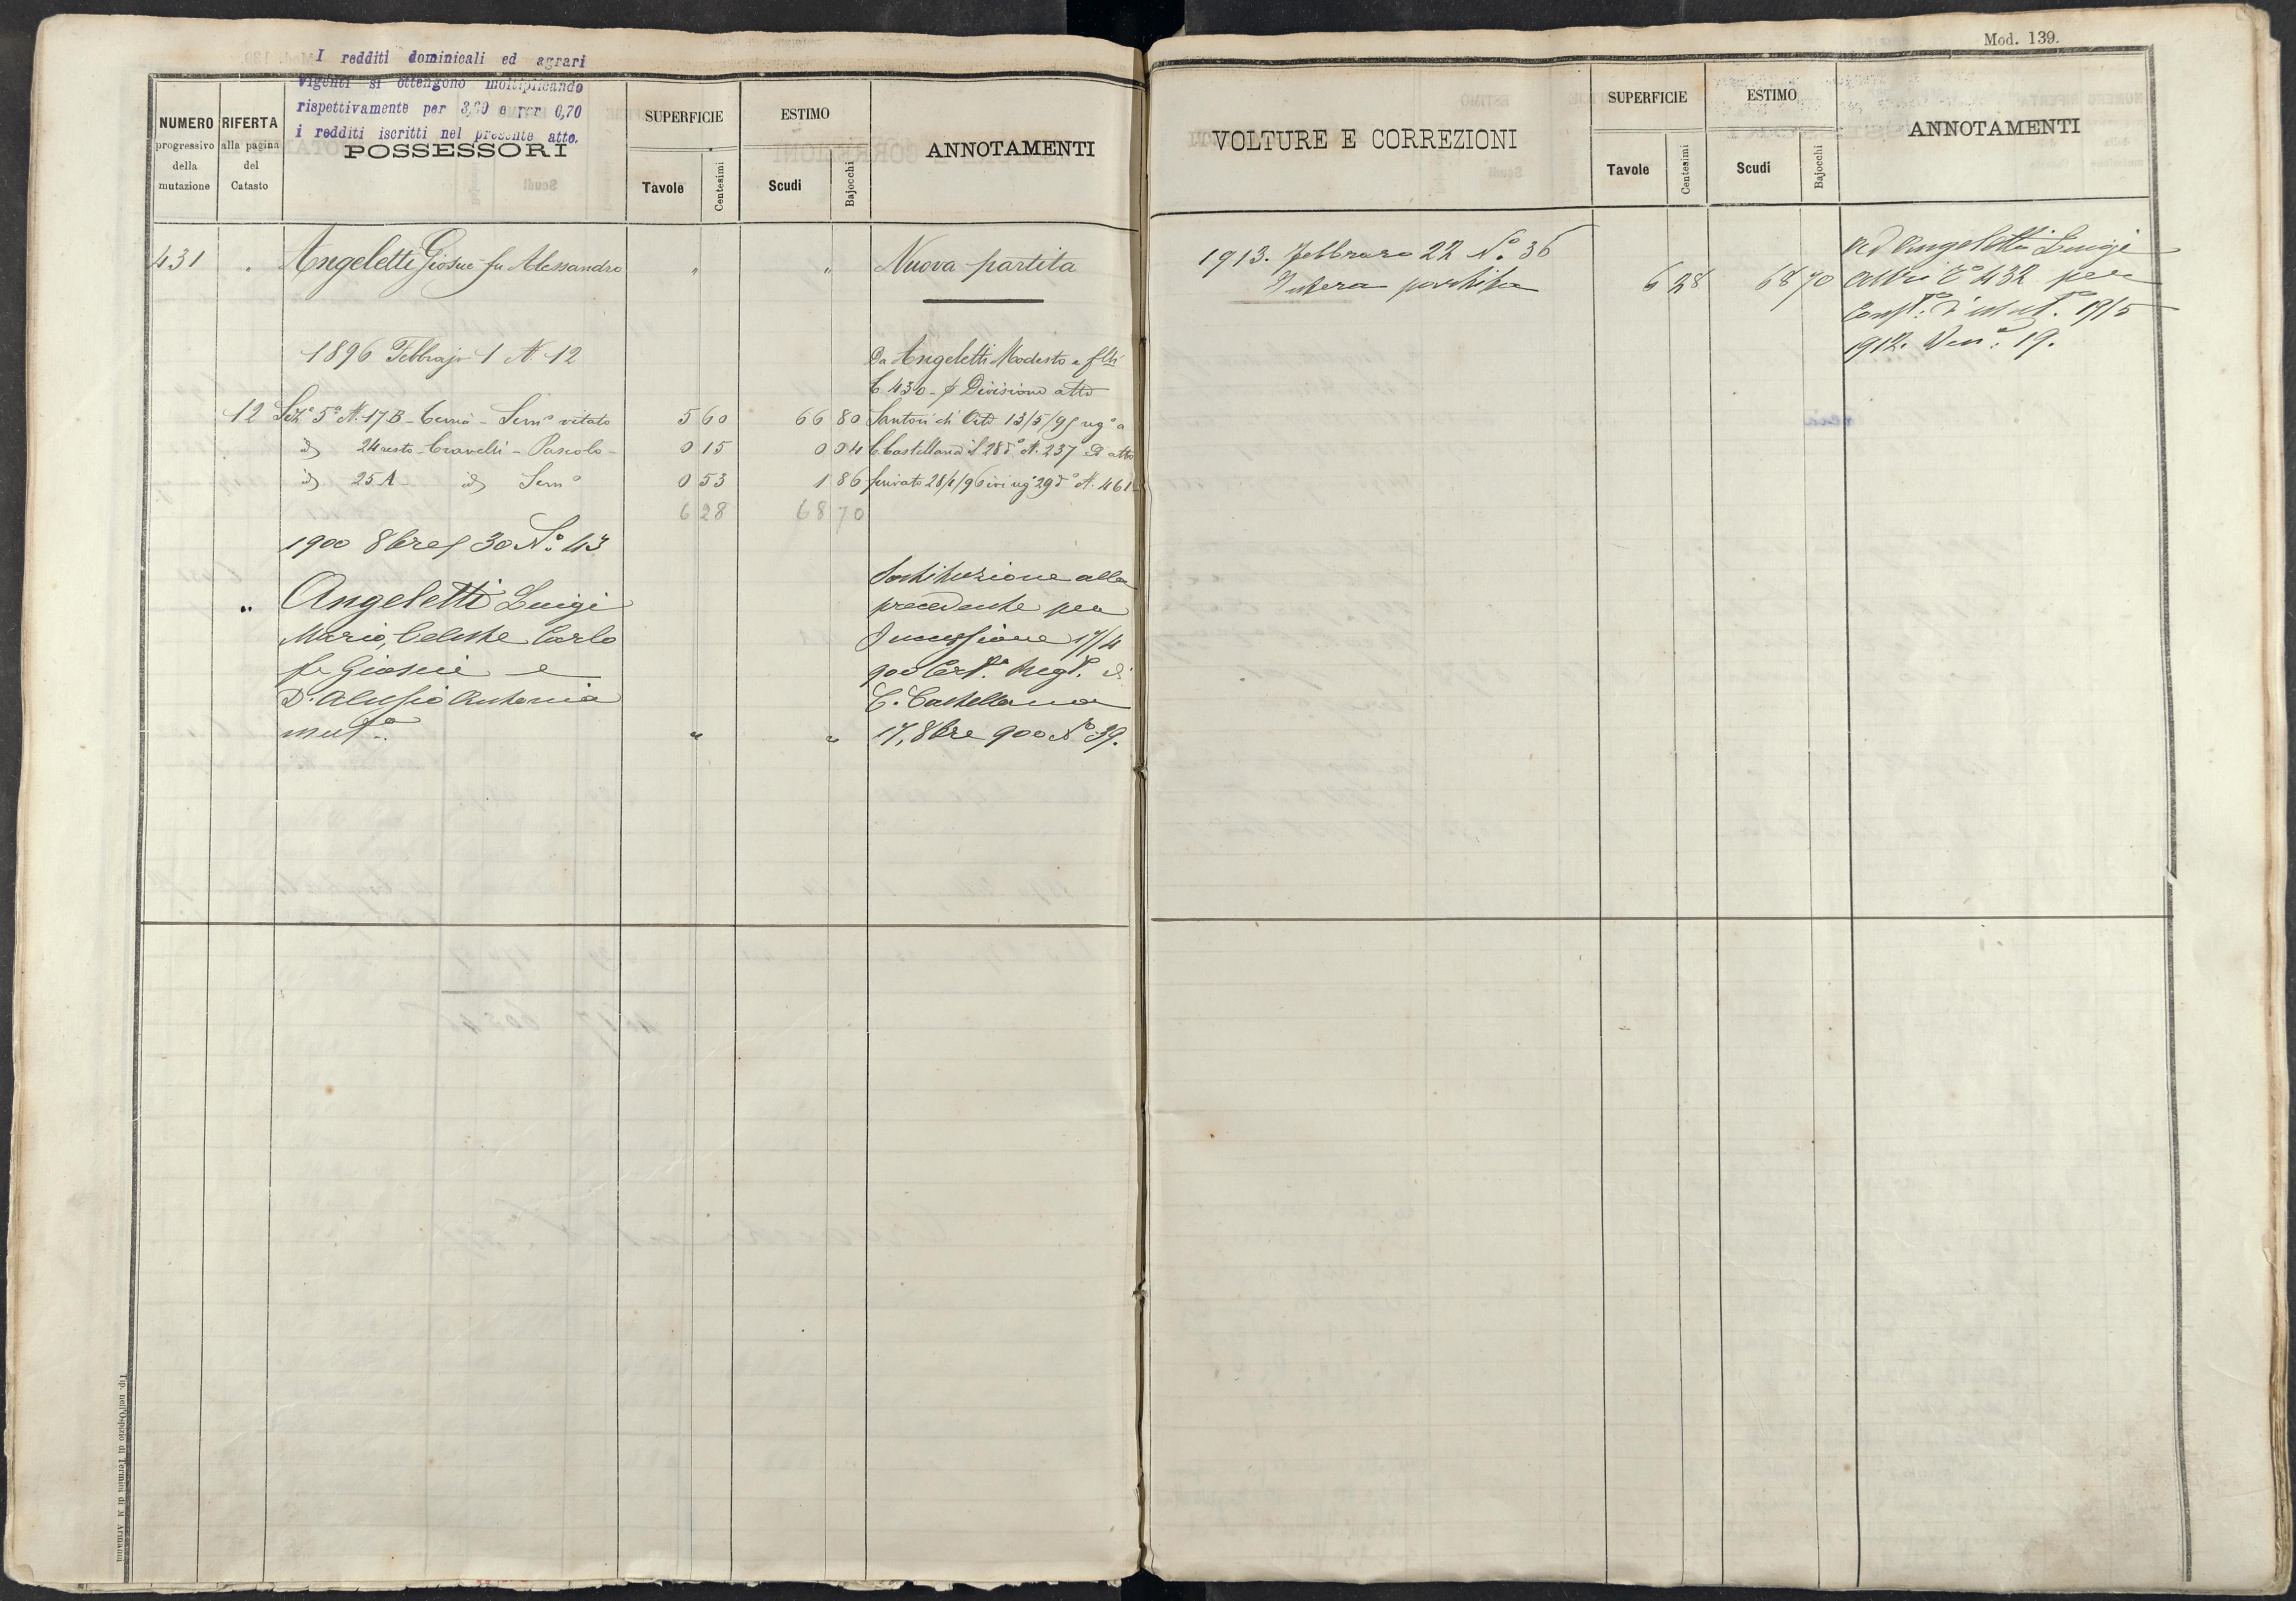 I redditi dominicali ed agrari
vigenti si ottengono moltiplicando
rispettivamente per 3,60 e per 0,70
i redditi iscritti nel presente atto.
NUMERO progressivo della mutazione
RIFERTA alla pagina del Catasto
POSSESSORI
SUPERFICIE
Tavole Centesimi
ESTIMO
Scudi Bajocchi
ANNOTAMENTI
431 Angeletti Giosuè fu Alessandro " " Nuova partita
1896 Febbrajo 1 N. 12
Da Angeletti Modesto e flli
C 430 - p Divisione atto
12 Sez. 5ª N. 17 B - Cerrio - Semº vitato 5 60 66 80 Santori di Vito 13/5/95 regº a
id 24 resto - Cravelli - Pascolo - 0 15 0 04 C Castellana il 28 dº N. 237 ed atto
id 25 A - id Semº 0 53 1 86 privato 28/1/96 ivi reg 29 dº N. 461
6 28 68 70
1900 8bre 30 Nº 43
" Angeletti Luigi
Mario, Celeste Carlo
fu Giosuè e
D'Alessio Antonia
" "
Sostituzione alla
precedente per
Successione 17/4
900 Cert. Reg. di
C. Castellana
17, 8bre 900 Nº 39.
Tip. nell'Ospizio di Termini di M. Armanni
Mod. 139.
VOLTURE E CORREZIONI
SUPERFICIE
Tavole Centesimi
ESTIMO
Scudi Bajocchi
ANNOTAMENTI
1913. Febbraro 22 Nº 36
Intera partita 6 28 68 70
Ad Angeletti Luigi
altri Cº 432 per
19/5
1912. 19.